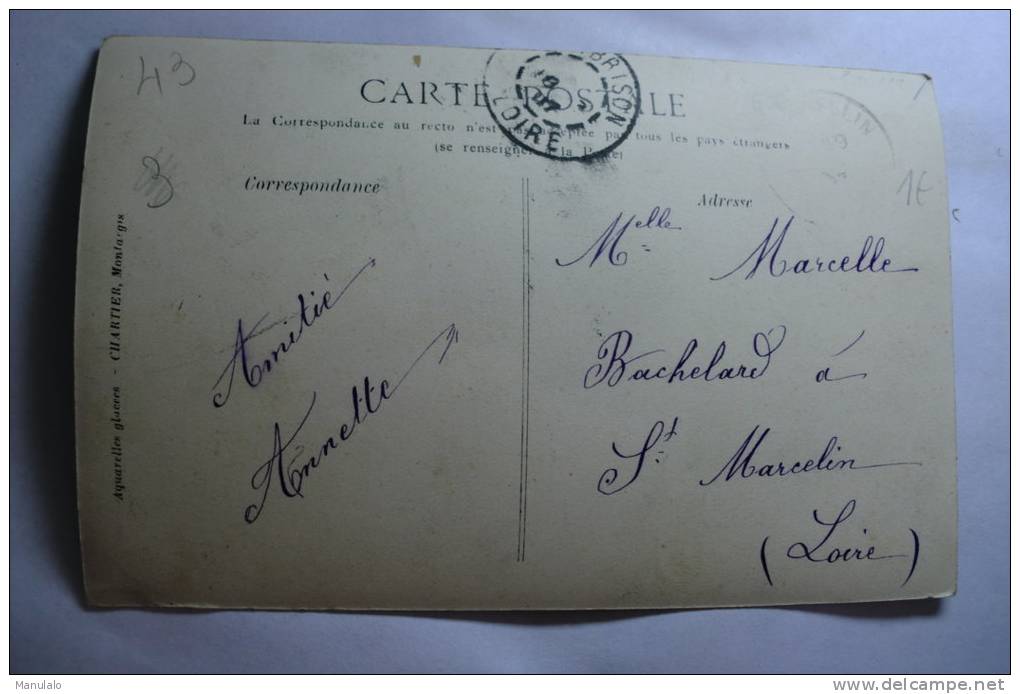 43
CARTE POSTALE
La Correspondance au recto n'est pas acceptée par tous les pays étrangers
(se renseigner à la Poste)
BRISON
LOIRE
LIN
3
1€
Correspondance
Adresse
Aquarelles glacées - CHARTIER, Montargis
Amitié
Annette
Melle Marcelle
Bachelard à
St Marcelin
(Loire)
Manulalo
delcampe.net